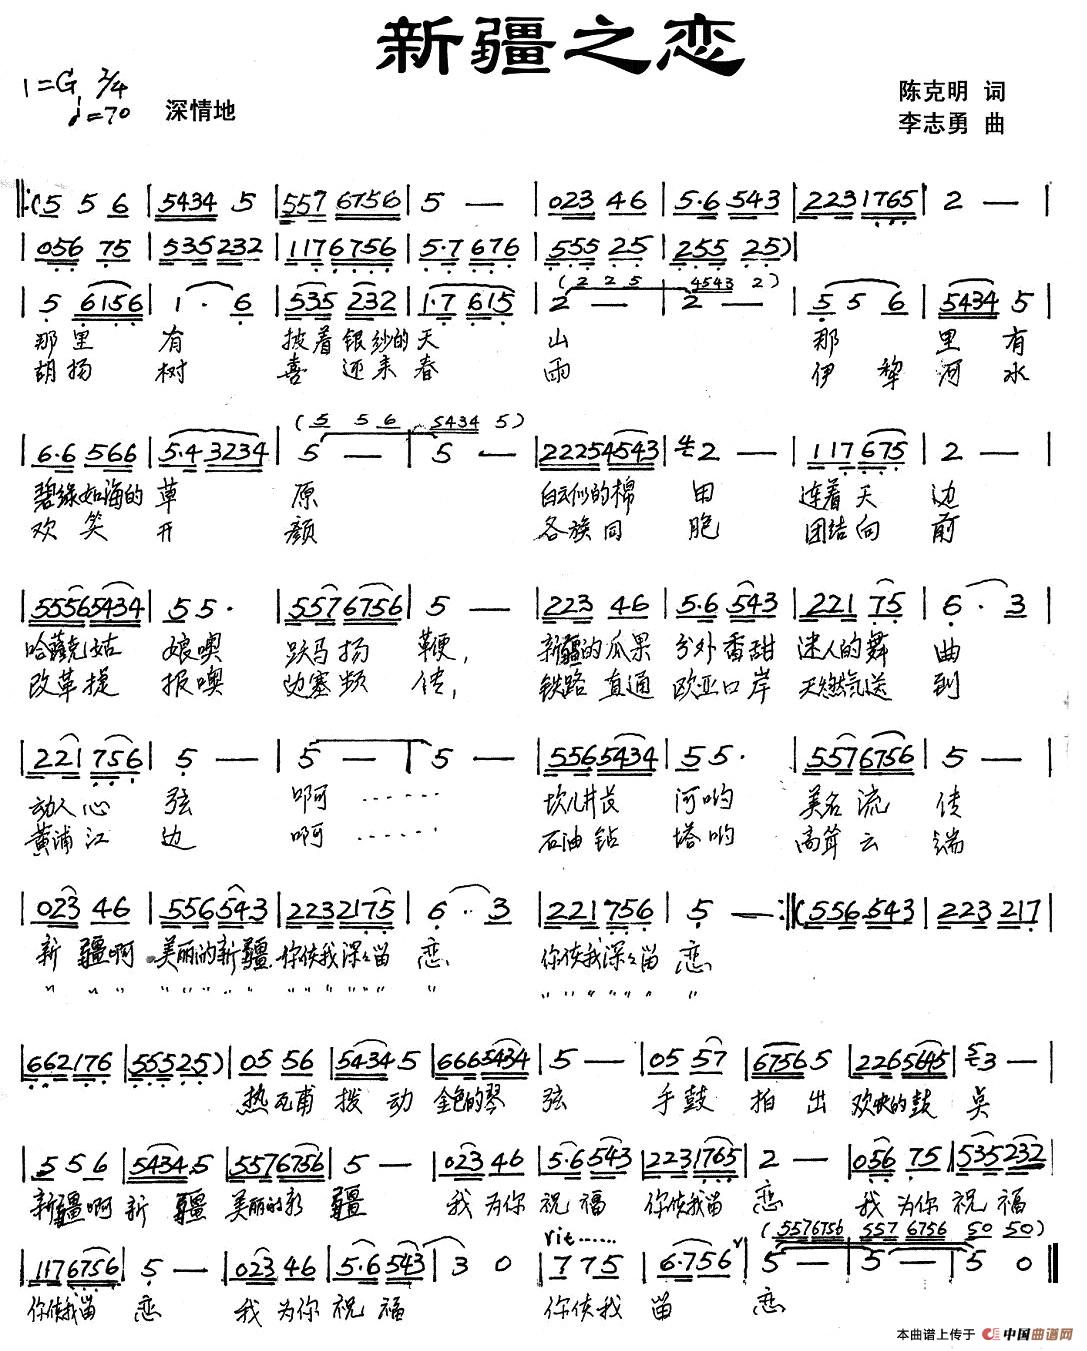 新疆之恋
1=G 2/4
♩=70 深情地
陈克明 词
李志勇 曲
‖:(5 5 6 | 5434 5 | 557 6756 | 5 — | 023 46 | 5·6 543 | 223 1765 | 2 — |
| 056 75 | 535 232 | 117 6756 | 5·7 676 | 555 25 | 255 25) |
(2 2 5 4543 2)
| 5 6156 | 1· 6 | 535 232 | 1·7 615 | 2 — | 2 — | 5 5 6 | 5434 5 |
那里 有 披着银纱的天 山 那 里有
胡杨 树 喜迎来春 雨 伊犁河水
(5 5 6 5434 5)
| 6·6 566 | 5·4 3234 | 5 — | 5 — | 22254543 | 2 — | 117 675 | 2 — |
碧绿如海的草 原 白云似的棉 田 连着天 边
欢笑 开 颜 各族同 胞 团结向 前
| 55565434 | 5 5· | 557 6756 | 5 — | 223 46 | 5·6 543 | 221 75 | 6· 3 |
哈萨克姑 娘噢 跃马扬 鞭, 新疆的瓜果 分外香甜 迷人的舞 曲
改革捷 报噢 边塞频 传, 铁路直通 欧亚口岸 天燃气送 到
| 221 756 | 5 — | 5 — | 5 — | 5565434 | 5 5· | 557 6756 | 5 — |
动人心 弦 啊…… 坎儿井长 河哟 美名流 传
黄浦江 边 啊…… 石油钻 塔哟 高耸云 端
| 023 46 | 556 543 | 223 2175 | 6· 3 | 221 756 | 5 — :‖ (556 543 | 223 217 |
新疆啊 美丽的新疆 你使我深深留 恋 你使我深深留 恋
〃 〃 〃 〃〃〃〃〃 〃〃〃〃〃 〃 〃〃〃〃〃〃 〃
| 662 176 | 555 25) | 05 56 | 5434 5 | 6665434 | 5 — | 05 57 | 6756 5 | 226 5645 | 3 — |
热瓦甫 拨动 金色的琴 弦 手鼓 拍出 欢快的鼓 点
| 5 5 6 | 5434 5 | 557 6756 | 5 — | 023 46 | 5·6 543 | 223 1765 | 2 — | 056 75 | 535 232 |
新疆啊 新疆 美丽的新 疆 我为你 祝福 你使我留 恋 我为你祝福
rit…… (5576756 557 6756 50 50)
| 117 6756 | 5 — | 023 46 | 5·6 543 | 3 0 | 7 75 | 6·756 | 5 — | 5 — | 5 0 ‖
你使我留 恋 我为你祝 福 你使我 留 恋
本曲谱上传于 中国曲谱网